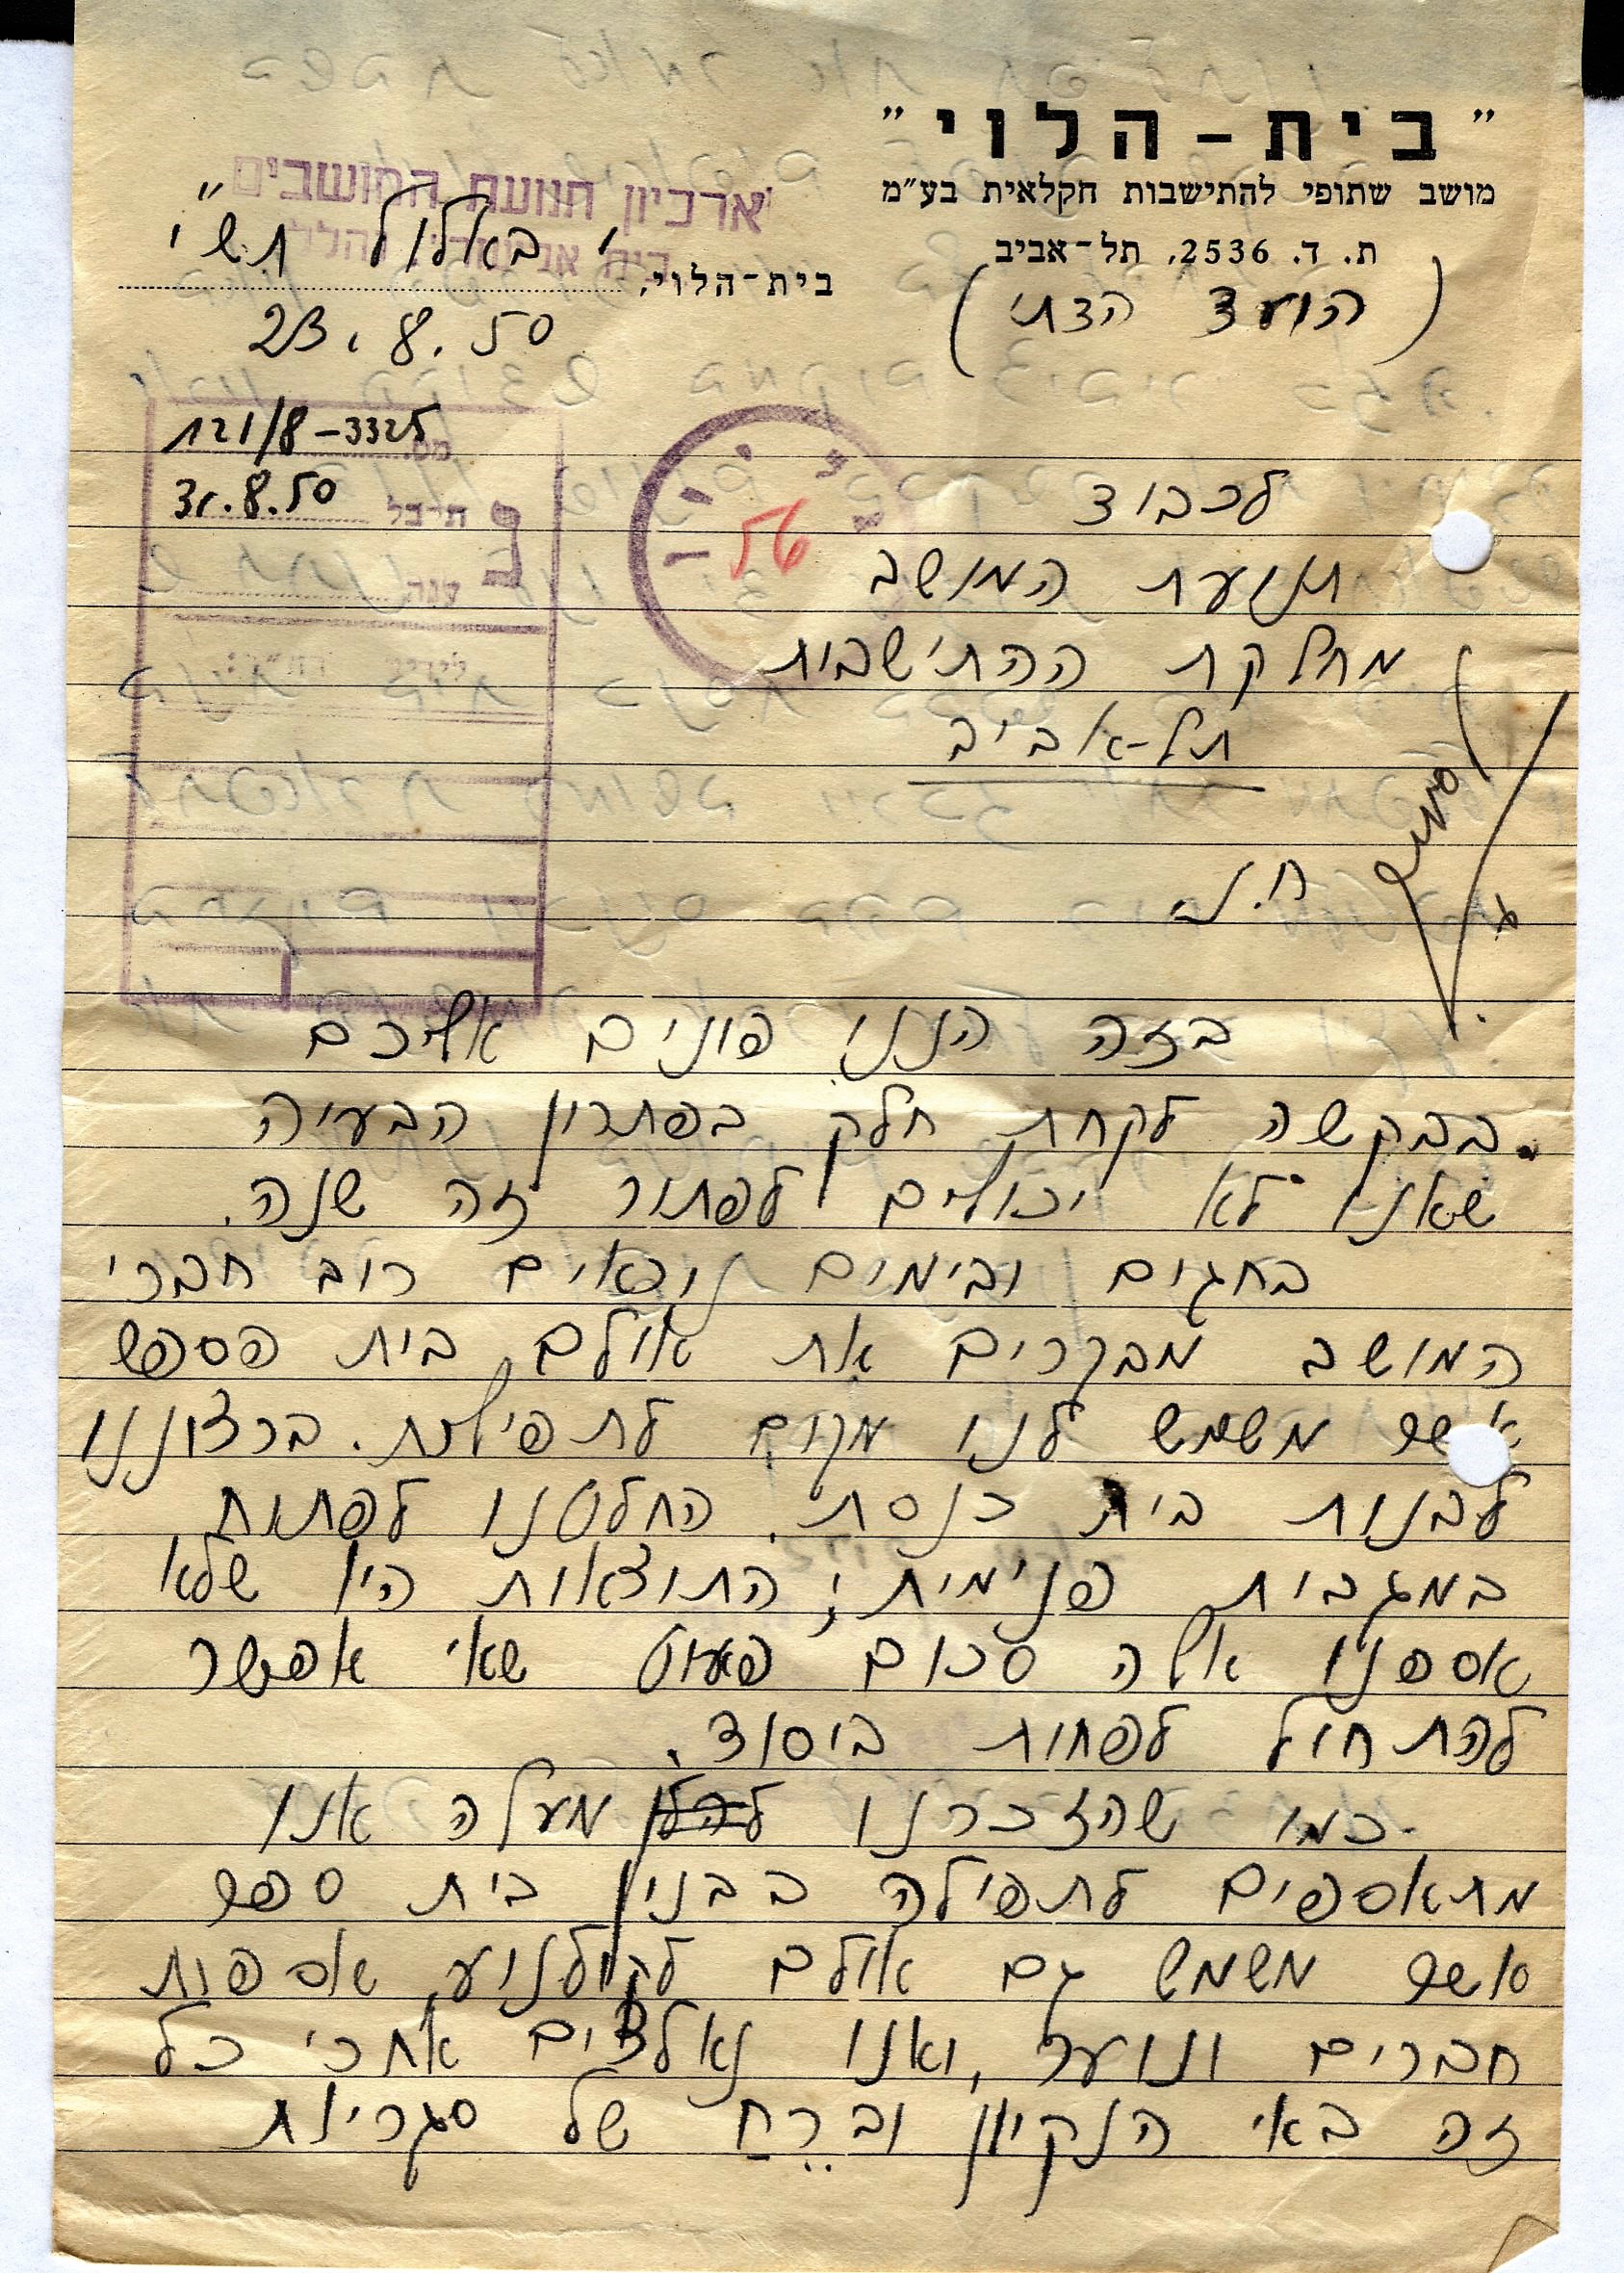 "בית-הלוי"
מושב שתופי להתישבות חקלאית בע"מ
ת. ד. 2536, תל-אביב
(הועד הדתי)
ארכיון תנועת המושבים
בית-הלוי, י' באלול תש"י
23.8.50
מס. 121/8-3325
תיק
נתקבל 31.8.50
ענה
56
לכבוד
תנועת המושב
מחלקת ההתישבות
תל-אביב
ח.נ.
בזה הננו פונים אליכם
בבקשה לקחת חלק בפתרון הבעיה
שאנו לא יכולים לפתור זה שנה.
בחגים ובימים נוראים רוב חברי
המושב מבקרים את אולם בית הספר
אשר משמש לנו מקום לתפילות. ברצוננו
לבנות בית כנסת. החלטנו לפתוח
במגבית פנימית; התוצאות היו שלא
אספנו אלה סכום פעוט שאי אפשר
להתחיל לפחות ביסוד.
כמו שהזכרנו להלן מעלה אנו
מתאספים לתפילה בבנין בית ספר
אשר משמש גם אולם לקולנוע, אספות
חברים ונוער, ואנו נאלצים אחרי כל
זה באי הנקיון ובריח של סגריות